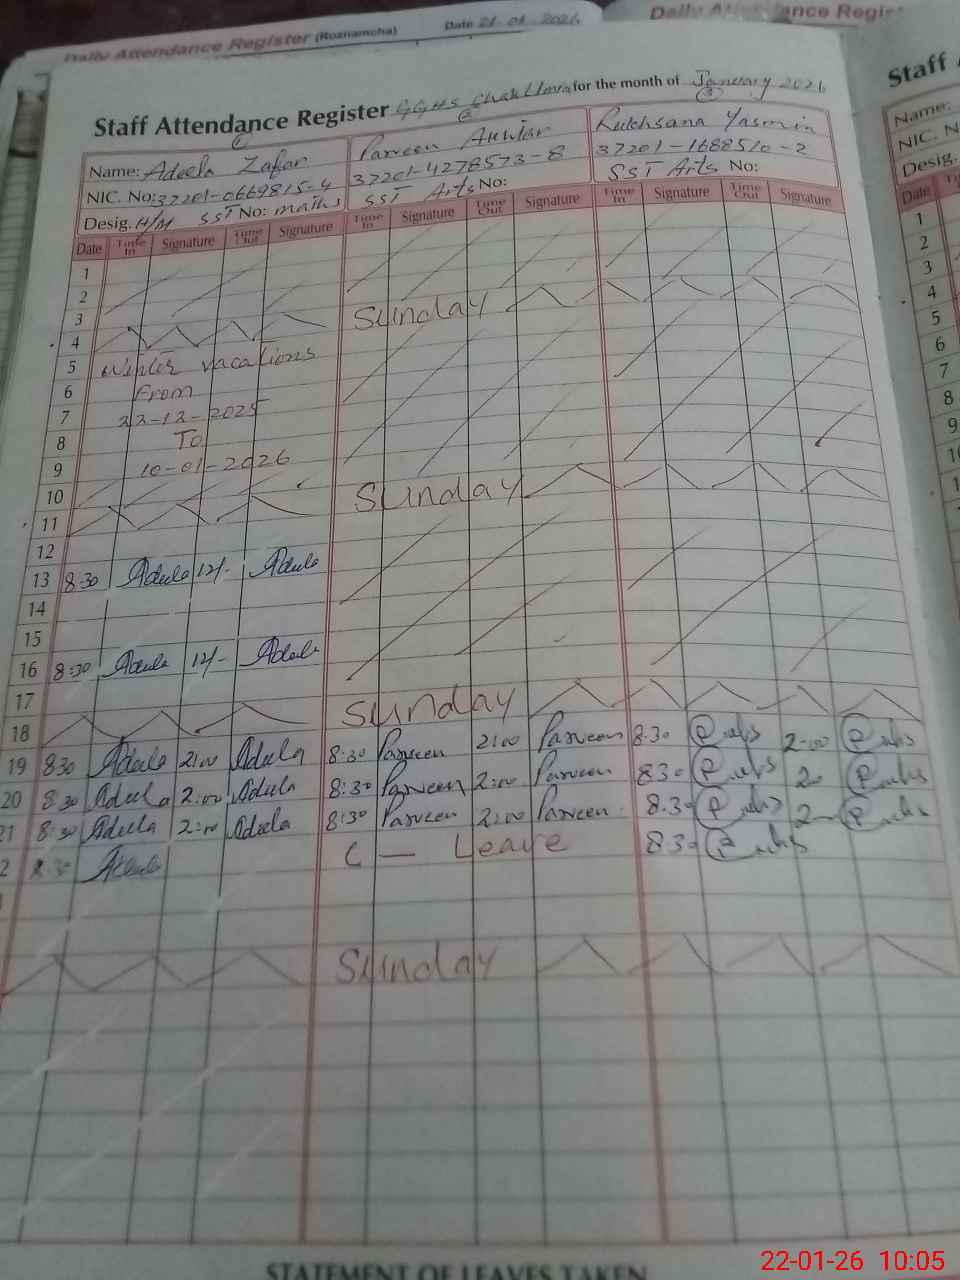 Daily Attendance Register (Roznamcha) Date 21-01-2026
Daily Attendance Regis
Staff Attendance Register GGHS Chak Umra for the month of January 2026
① ② ③
Name: Adeela Zafar Parveen Akhtar Rukhsana Yasmin
NIC. No: 37201-0669815-4 37201-4278573-8 37201-1688510-2
Desig. H/M SST No: maths SST Arts No: SST Arts No:
Date Time In Signature Time Out Signature Time In Signature Time Out Signature Time In Signature Time Out Signature
1
2
3 Sunday
4
5 Winter vacations
6 From
7 22-12-2025
8 To
9 10-01-2026
10 Sunday
11
12
13 8:30 Adeela 12/- Adeela
14
15
16 8:30 Adeela 12/- Adeela
17 Sunday
18
19 8:30 Adeela 2:00 Adeela 8:30 Parveen 2:00 Parveen 8:30 2:00
20 8:30 Adeela 2:00 Adeela 8:30 Parveen 2:00 Parveen 8:30
21 8:30 Adeela 2:00 Adeela 8:30 Parveen 2:00 Parveen 8:30
2 8:30 Adeela C — Leave 8:30
Sunday
STATEMENT OF LEAVES TAKEN
Staff
Name:
NIC. N
Desig.
Date
1
2
3
4
5
6
7
8
9
22-01-26 10:05